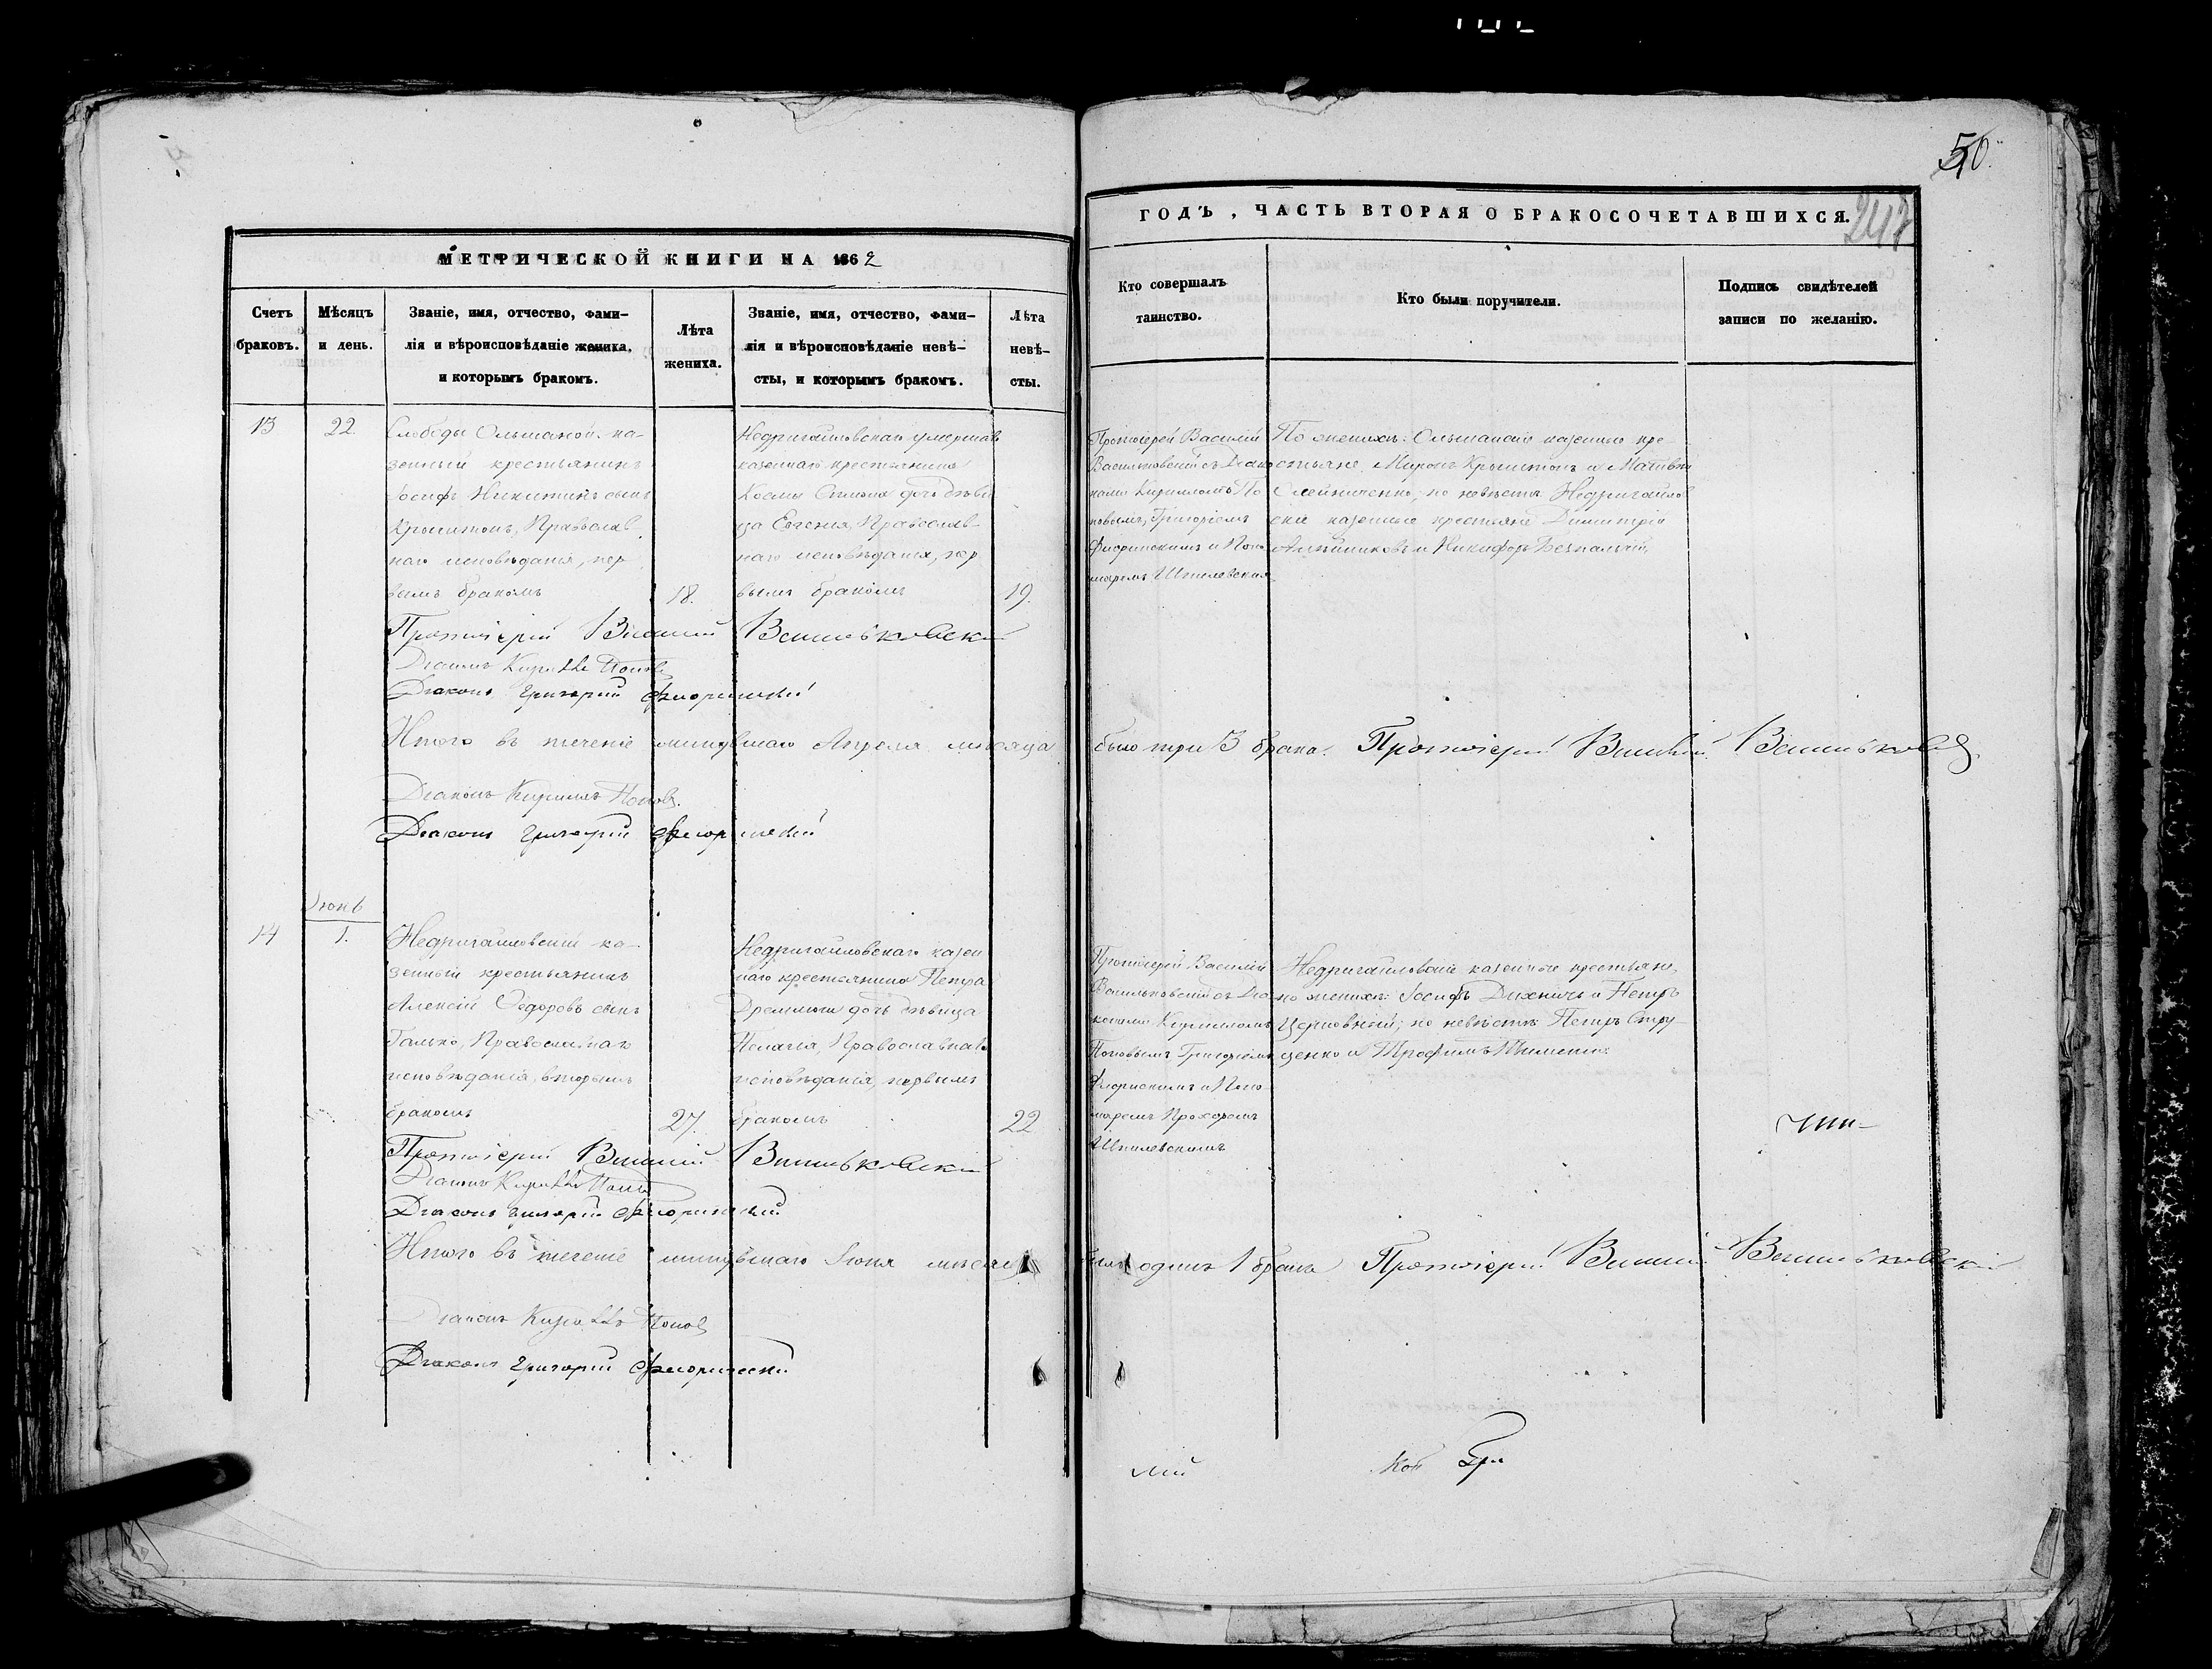 50.
МЕТРИЧЕСКОЙ КНИГИ НА 1862
ГОДЪ, ЧАСТЬ ВТОРАЯ О БРАКОСОЧЕТАВШИХСЯ.
Счетъ
браковъ.
Мѣсяцъ
и день.
Званіе, имя, отчество, фами-
лія и вѣроисповѣданіе жениха,
и которымъ бракомъ.
Лѣта
жениха.
Званіе, имя, отчество, фами-
лія и вѣроисповѣданіе невѣ-
сты, и которымъ бракомъ.
Лѣта
невѣ-
сты.
Кто совершалъ
таинство.
Кто были поручители.
Подпись свидѣтелей
записи по желанію.
13
22.
Слободы Ольшаной ка-
зенный крестьянинъ
Іосифъ Никитинъ сынъ
Крыштопъ, Православ
наго исповѣданія, пер
вымъ бракомъ
18.
Недригайловскаго умершаго
казеннаго крестьянина
Космы дочь дѣви
ца Евгенія, Православ-
наго исповѣданія, пер
вымъ бракомъ
19.
Протоіерей Василій
Васильковскій съ Діако
нами Кирилломъ По
повымъ, Григоріемъ
Флоринскимъ и Поно
маремъ Шпилевскимъ
По женихѣ: Ольшанскіе казенные кре-
стьяне, Миронъ Крыштопъ и Матвѣй
Олейниченко; по невѣстѣ Недригайлов
скіе казенные крестьяне Димитрій
и Никифоръ Безпалый.
Протоіерей Василій Васильковскій
Діаконъ Кириллъ Поповъ
Діаконъ Григорій Флоринскій
Итого въ теченіе минувшаго Апрѣля мѣсяца было три 3 брака. Протоіерей Василій Васильковскій
Діаконъ Кириллъ Поповъ.
Діаконъ Григорій Флоринскій
Іюнь
14
1.
Недригайловскій ка-
зенный крестьянинъ
Алексій Ѳедоровъ сынъ
Галько, Православнаго
исповѣданія, вторымъ
бракомъ
27.
Недригайловскаго казен
наго крестьянина Петра
Дремлюги дочь дѣвица
Пелагія, Православнаго
исповѣданія, первымъ
бракомъ
22
Протоіерей Василій
Васильковскій съ Діа
конами Кирилломъ
Поповымъ Григоріемъ
Флоринскимъ и Поно
маремъ Прохоромъ
Шпилевскимъ
Недригайловскіе казенные крестьяне,
по женихѣ: Іосифъ Дихничъ и Петръ
Церковный; по невѣстѣ Петръ Стру
ценко и Трофимъ
Протоіерей Василій Васильковскій
Діаконъ Кириллъ Поповъ
Діаконъ Григорій Флоринскій
Итого въ теченіе минувшаго Іюня мѣсяца былъ одинъ 1 бракъ Протоіерей Василій Васильковскій
Діаконъ Кириллъ Поповъ
Діаконъ Григорій Флоринскій
лій
Кон Гри